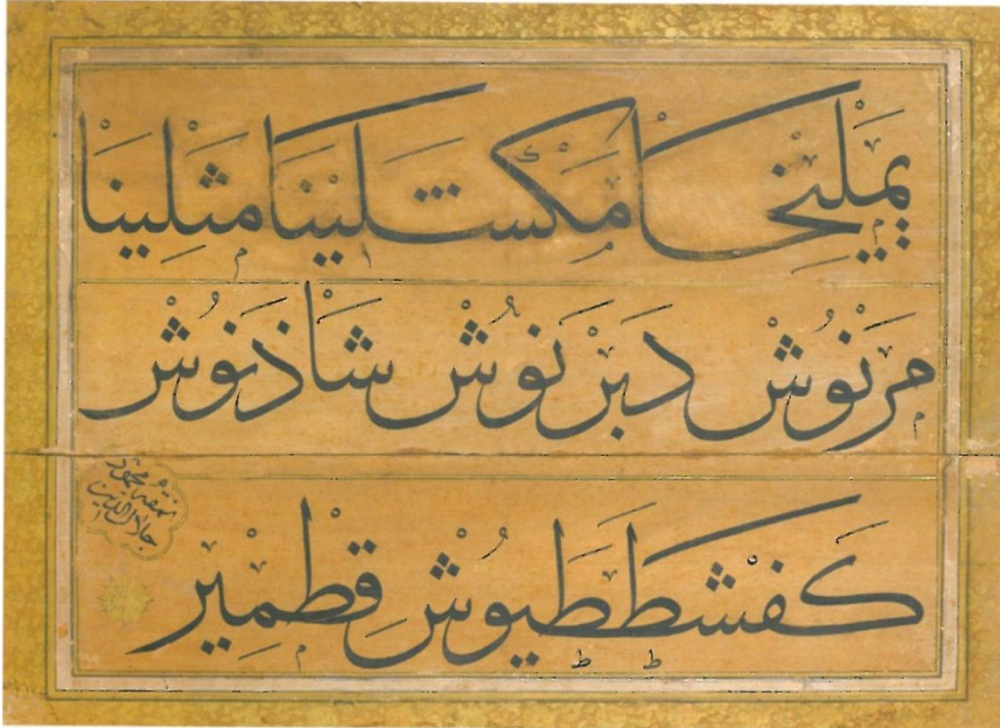 يَمْلِيْخَا مَكْسَلِيْنَا مَثْلِينَا
مَرْنُوشْ دَبَرْنُوشْ شَاذَنُوشْ
كَفَشْطَطَيُوشْ قِطْمِيْر
نمقه محمود
جلال الدين